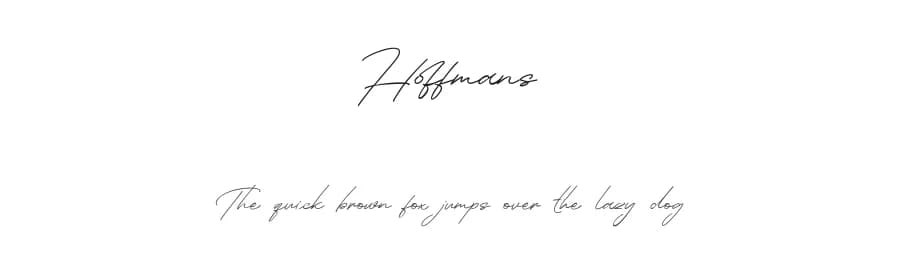 Hoffmans
The quick brown fox jumps over the lazy dog